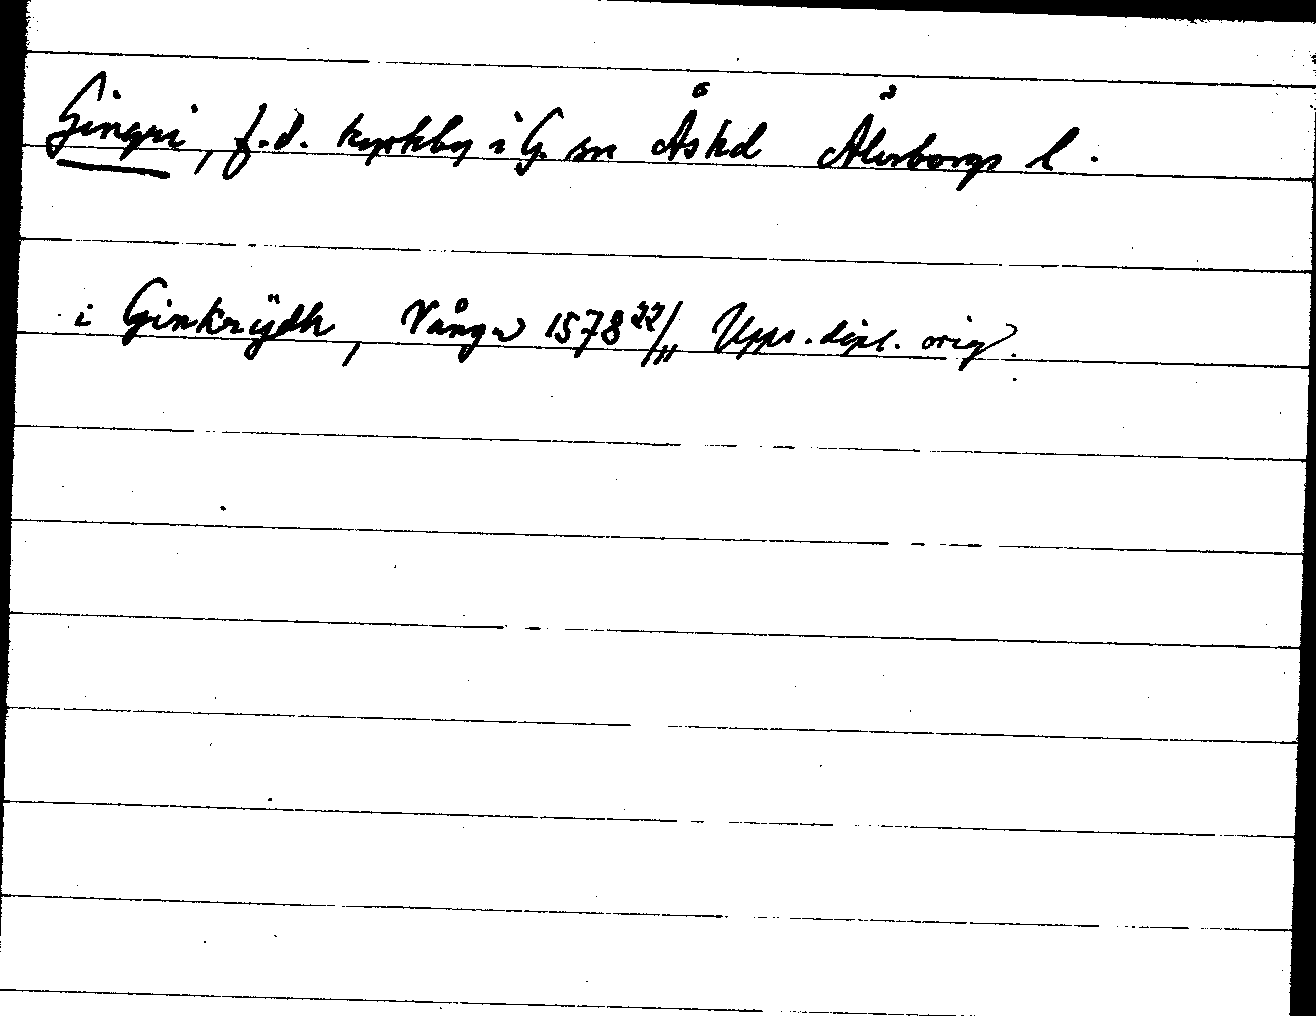 Gingri, f.d. kyrkby i G. sn Åshd Älvsborgs l.
i Ginkrÿdh, Vånga 1578 22/11 Upps. dipl. orig.